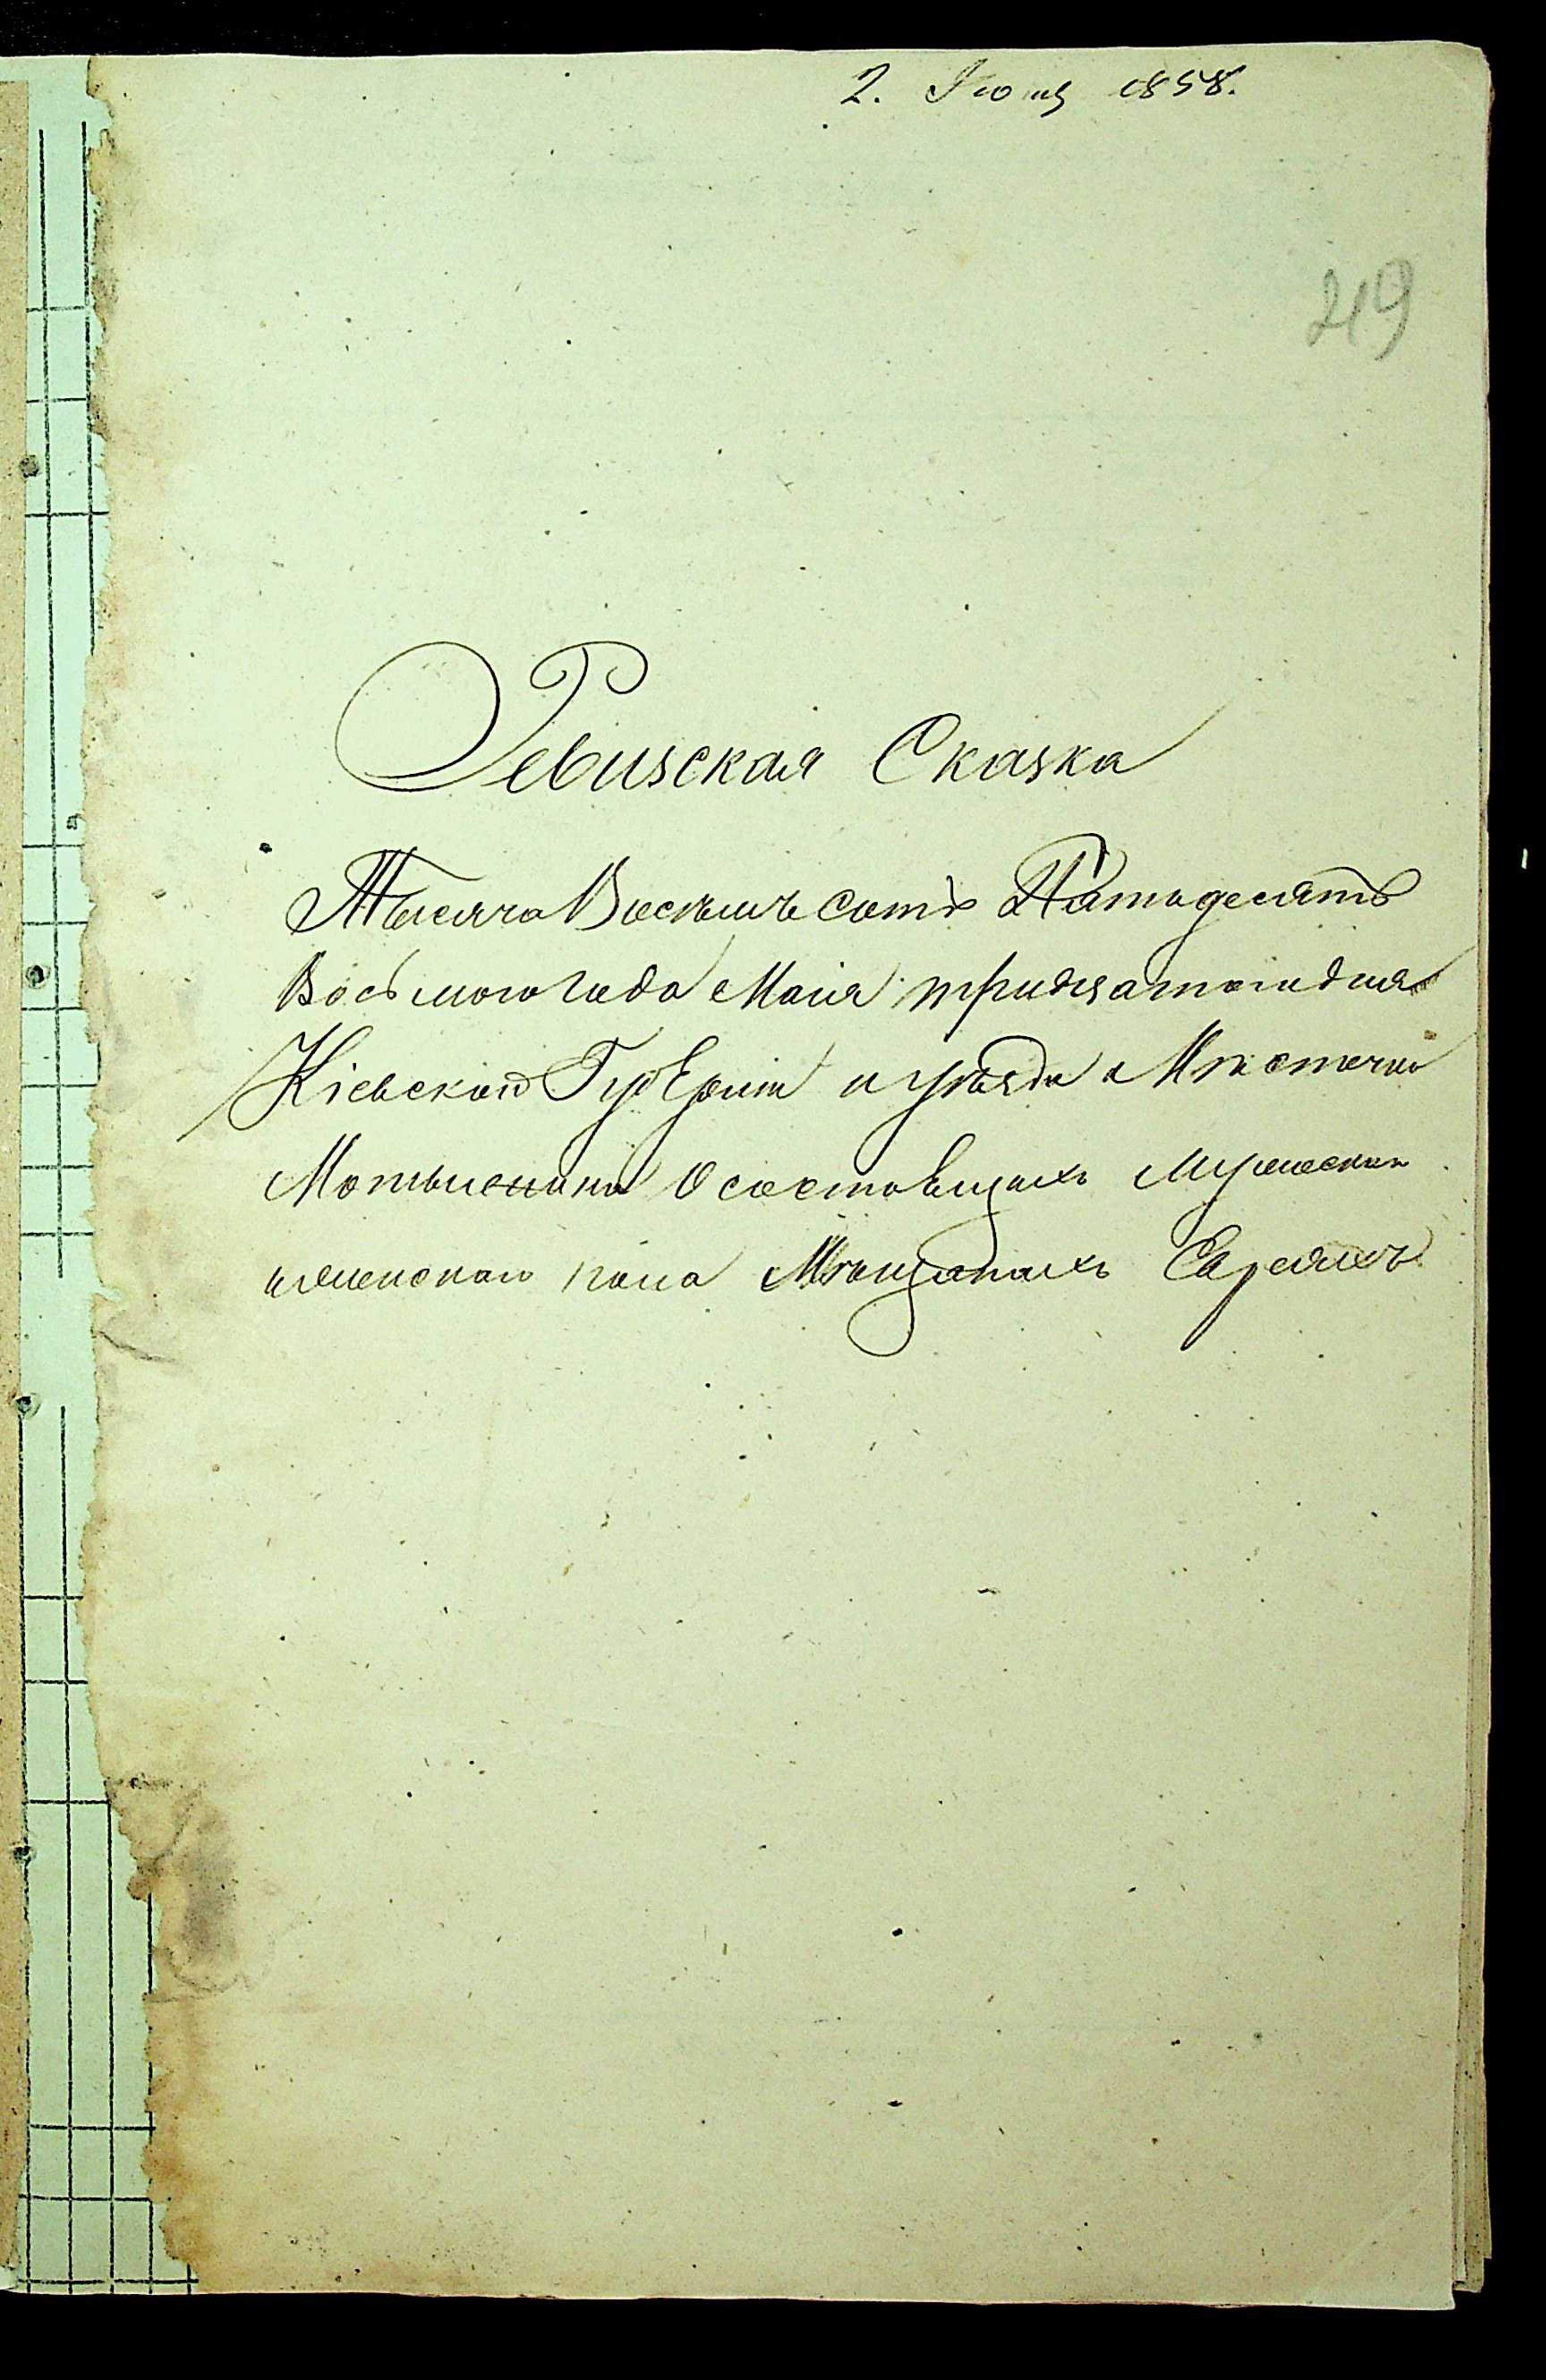 2. Іюня 1858.
219
Ревизская Сказка
Тысяча Восѣмъ сотъ Пятьдесятъ
Восьмого года Маія тридцатого дня
Кіевской Губерніи и уѣзда Мѣстечка
Мотыжина О состоящихъ мужеска
и женскаго пола Мѣщанахъ Евреяхъ